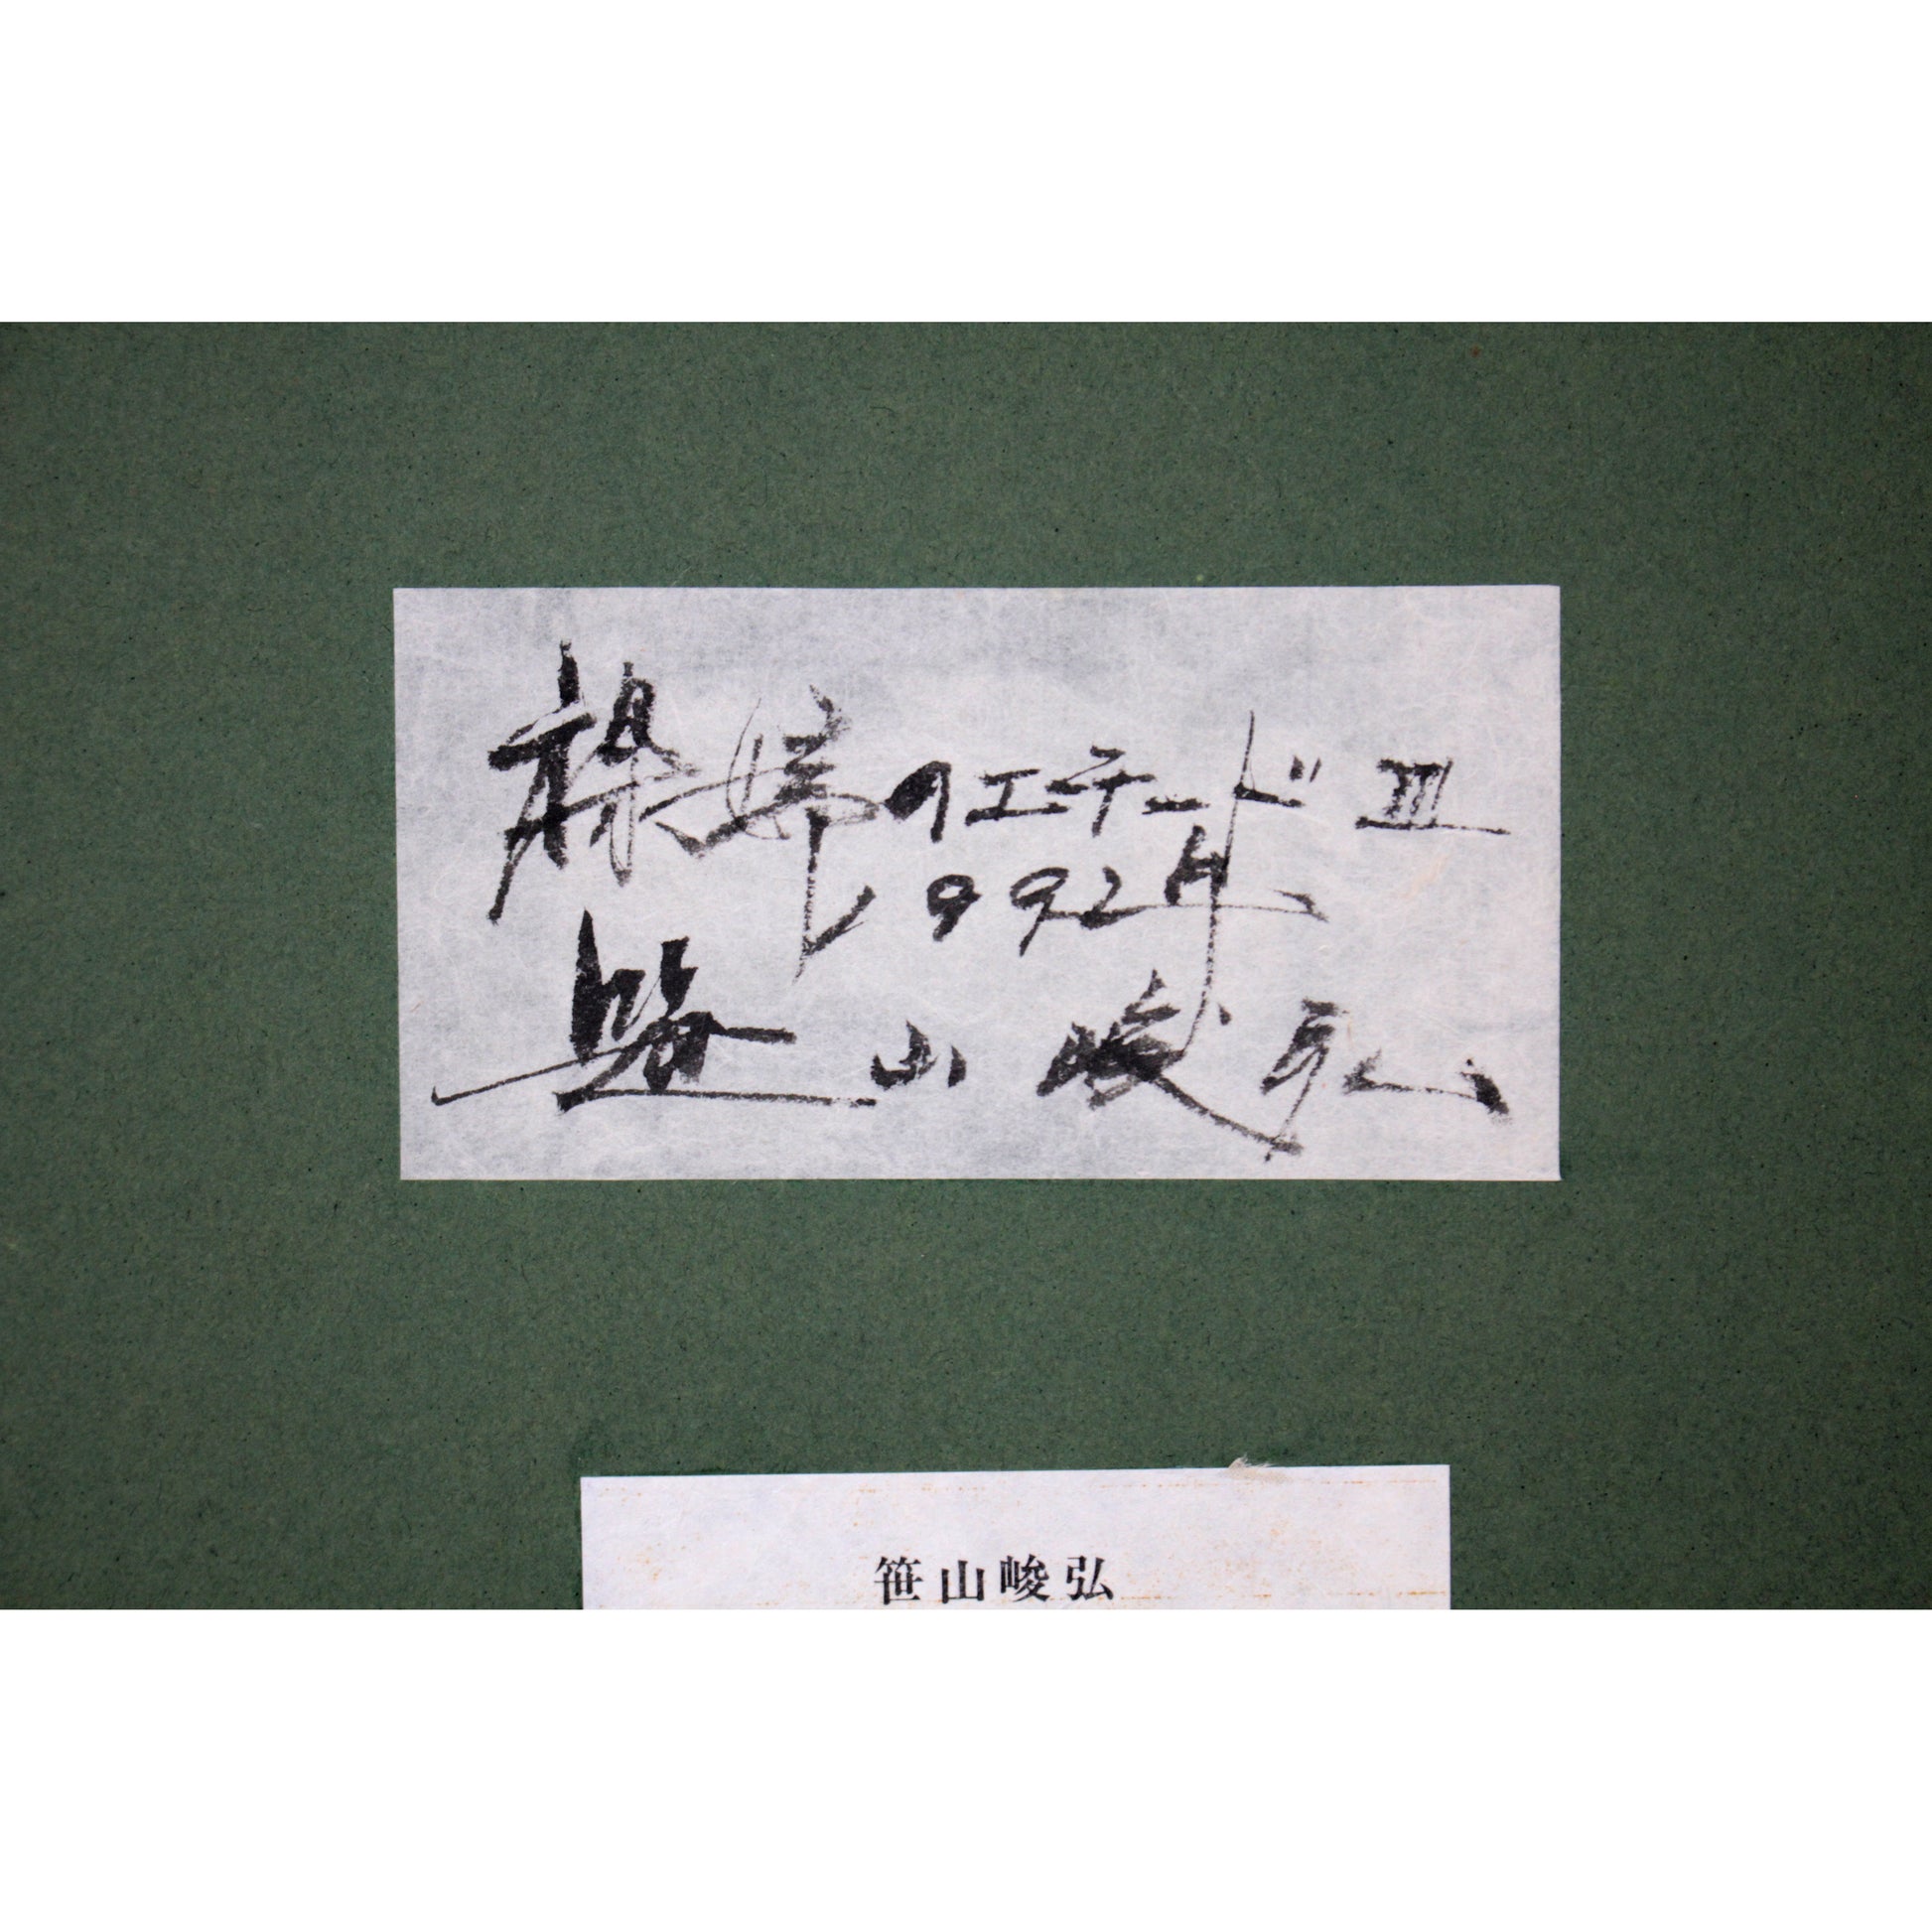 裸婦のエチュード Ⅲ
1992年
笹山峻弘
笹山峻弘